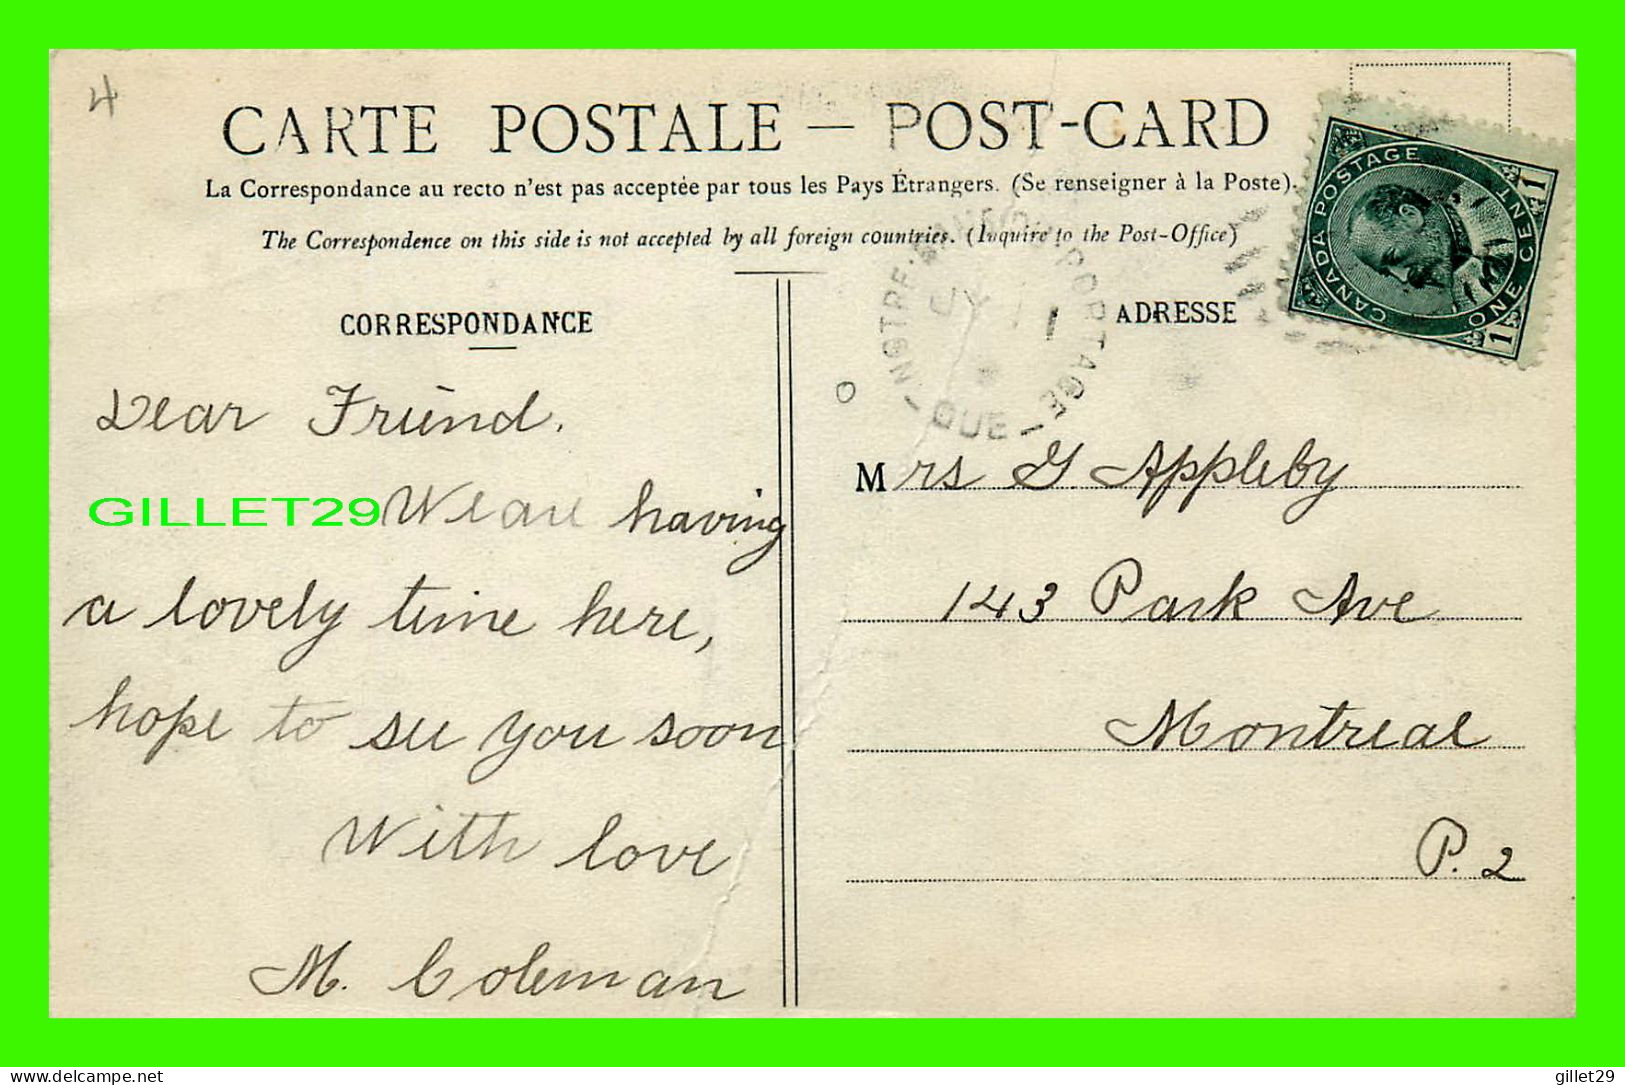 4
CARTE POSTALE — POST-CARD
La Correspondance au recto n'est pas acceptée par tous les Pays Étrangers. (Se renseigner à la Poste).
The Correspondence on this side is not accepted by all foreign countries. (Inquire to the Post-Office)
CANADA POSTAGE
ONE CENT
1 1
NOTRE-DAME DU PORTAGE
JY 11
QUE
CORRESPONDANCE
Dear Friend.
We are having
a lovely time here,
hope to see you soon
With love
M. Coleman
ADRESSE
Mrs G Appleby
143 Park Ave
Montreal
P. 2
GILLET29
delcampe.net
gillet29